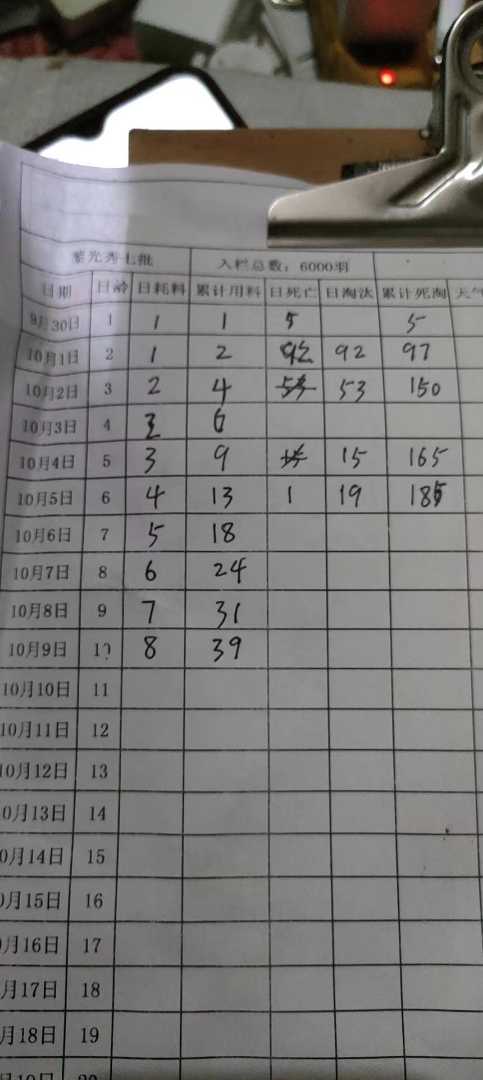 光秀七批 入栏总数：6000羽
日期 日龄 日耗料 累计用料 日死亡 日淘汰 累计死淘 天气
9月30日 1 1 1 5 5
10月1日 2 1 2 92 92 97
10月2日 3 2 4 53 53 150
10月3日 4 2 6
10月4日 5 3 9 15 15 165
10月5日 6 4 13 1 19 185
10月6日 7 5 18
10月7日 8 6 24
10月8日 9 7 31
10月9日 10 8 39
10月10日 11
10月11日 12
10月12日 13
0月13日 14
0月14日 15
月15日 16
月16日 17
月17日 18
月18日 19